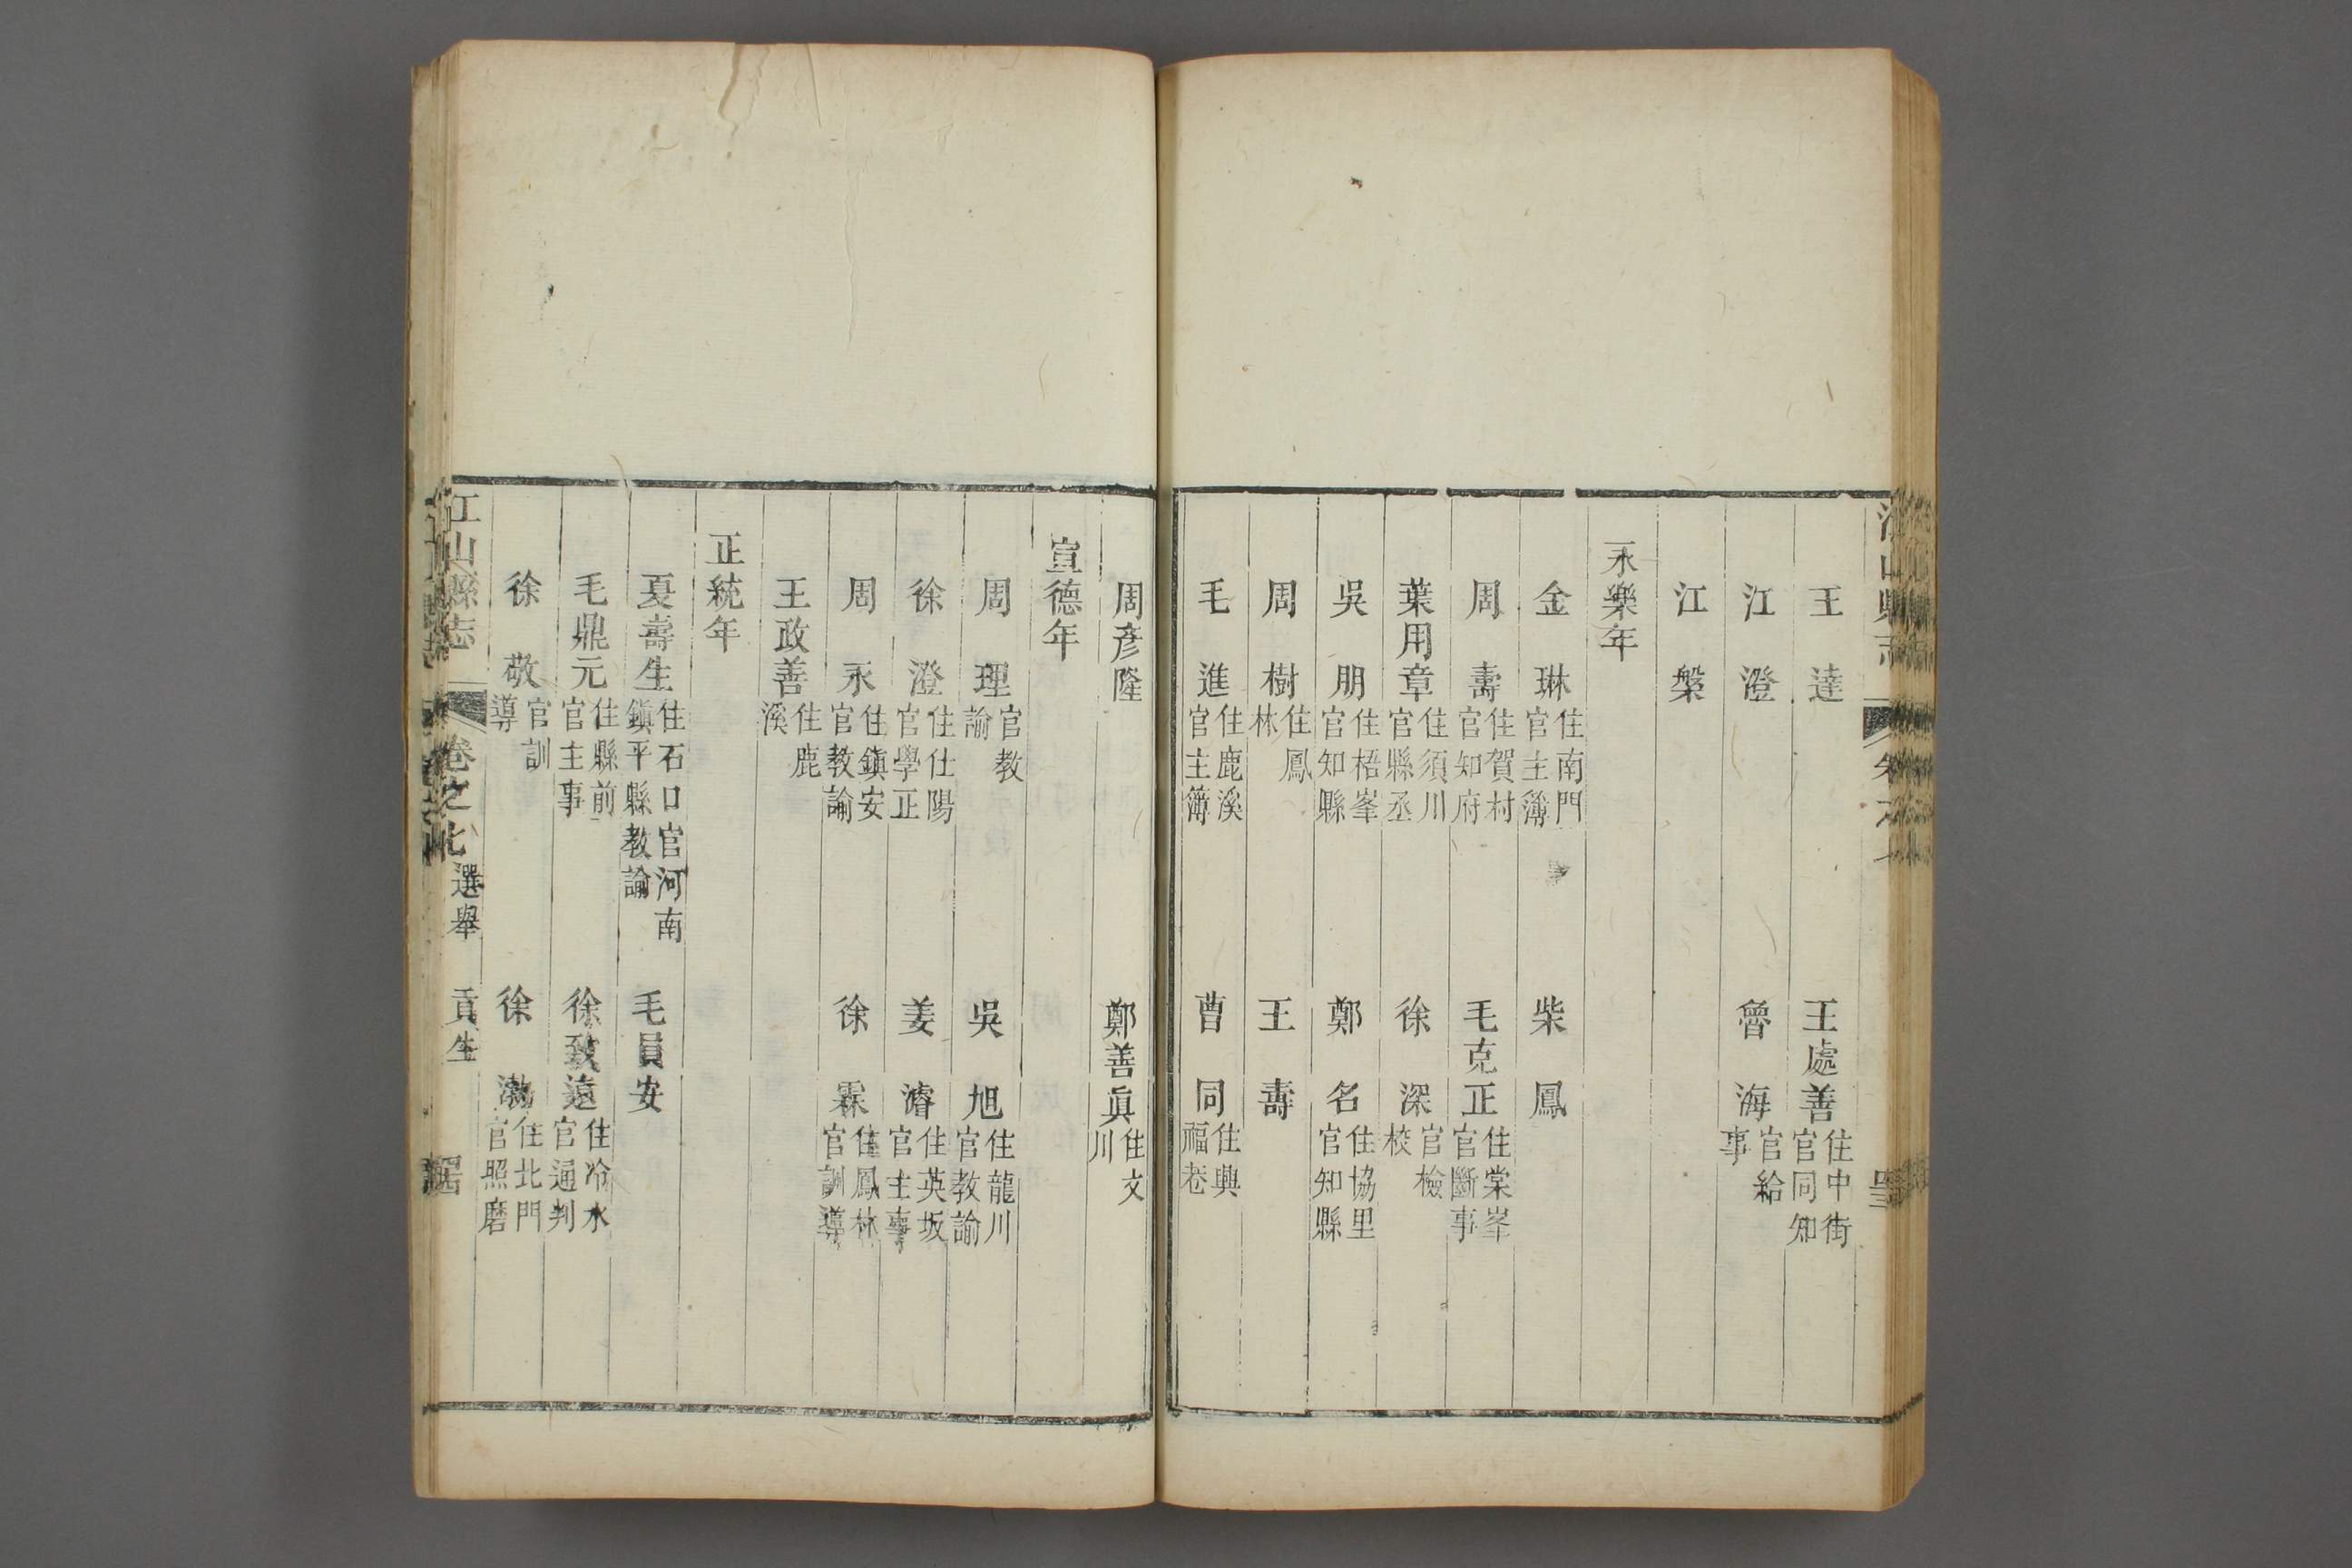 王達 王處善 住中街官同知
江澄 魯海 官給事
江槃
永樂年
金琳 住南門官主簿 柴鳳
周壽 住賀村官知府 毛克正 住棠峯官斷事
葉用章 住須川官縣丞 徐深 官檢校
吳朋 住梧峯官知縣 鄭名 住協里官知縣
周樹 住鳳林 王壽
毛進 住鹿溪官主簿 曹同 住興福老
周彥隆 鄭善眞 住文川
宣德年
周理 官教諭 吳旭 住龍川官教諭
徐澄 住仕陽官學正 姜濬 住英坂官主事
周永 住鎭安官教諭 徐霖 住鳳林官訓導
王政善 住鹿溪
正統年
夏壽生 住石口官河南鎭平縣教諭 毛員安
毛鼎元 住縣前官主事 徐致遠 住冷水官通判
徐敬 官訓導 徐渤 住北門官照磨
江山縣志 卷之 選舉 貢生